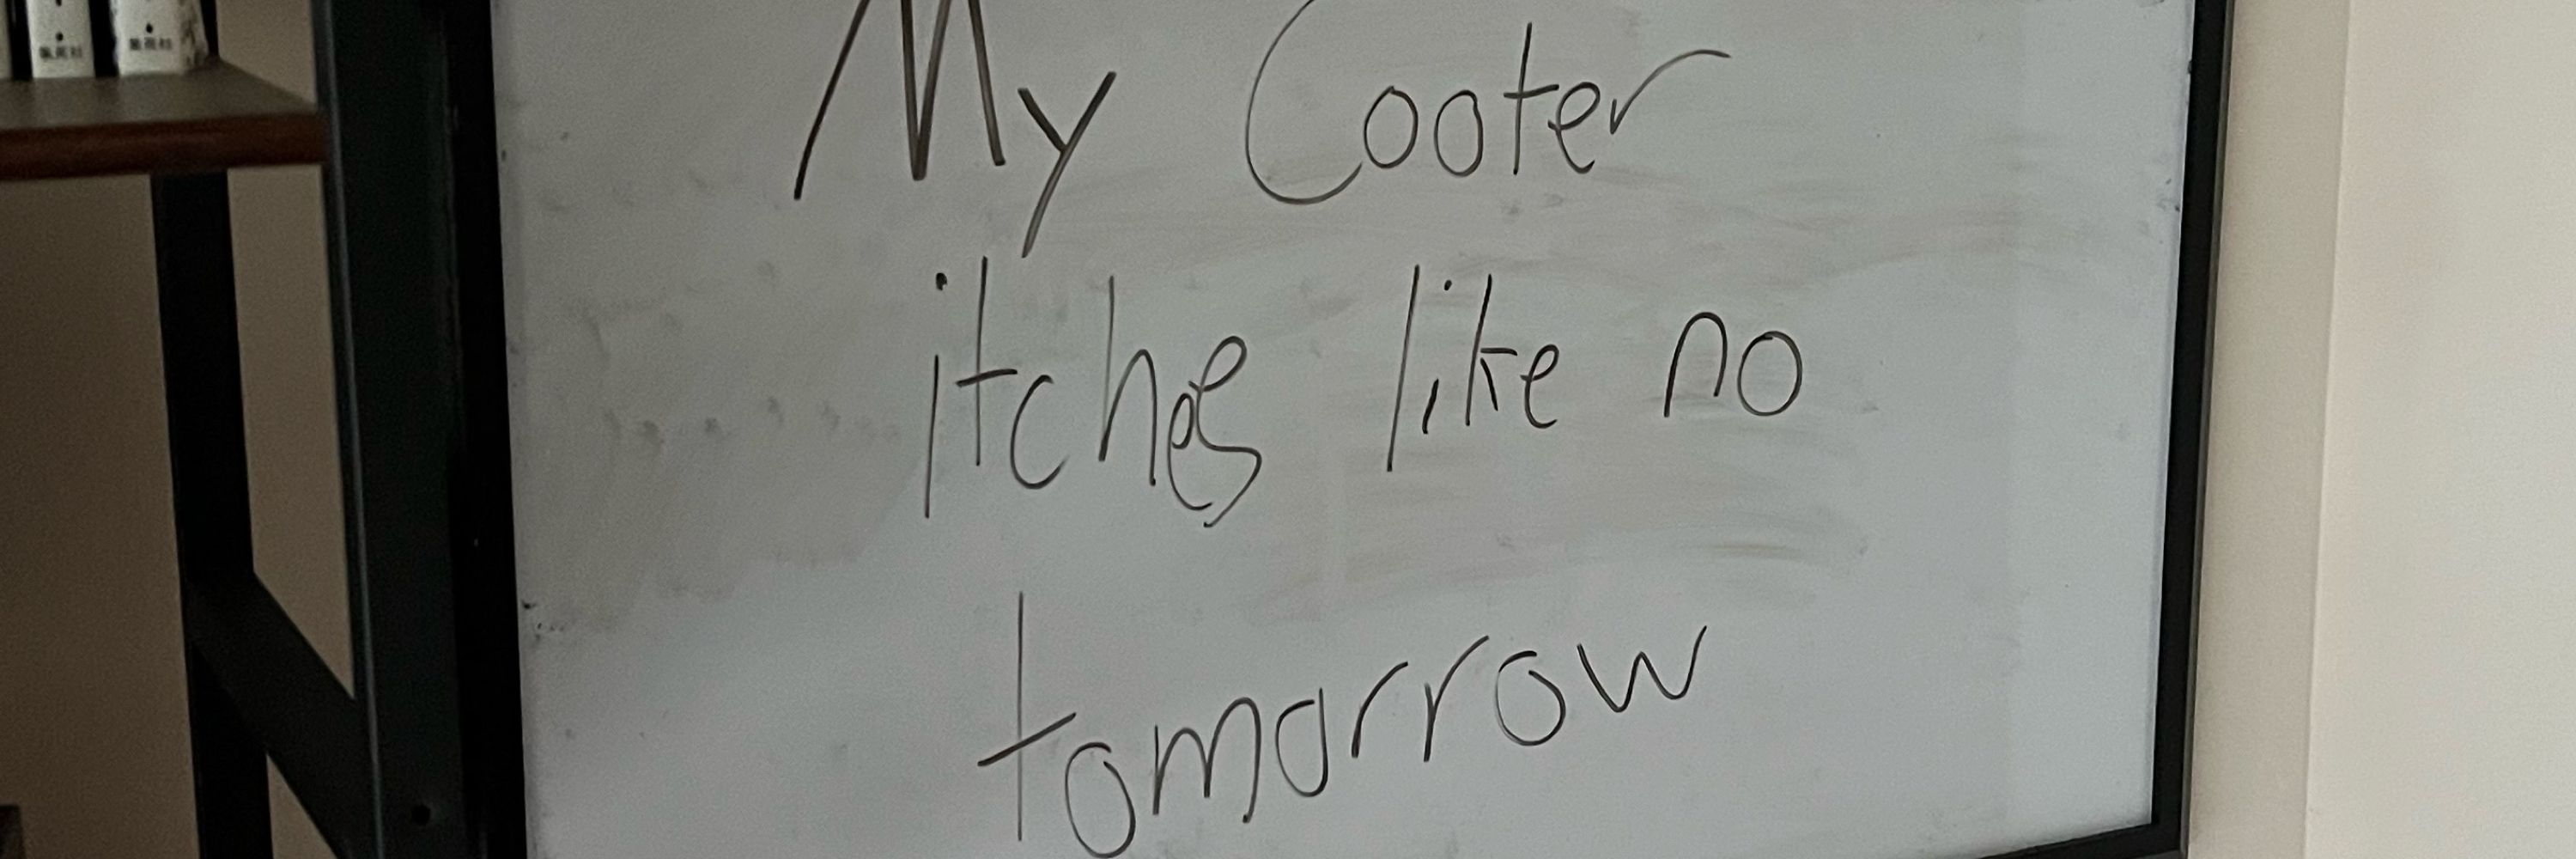 My Cooter
itches like no
tomorrow
集英社
集英社